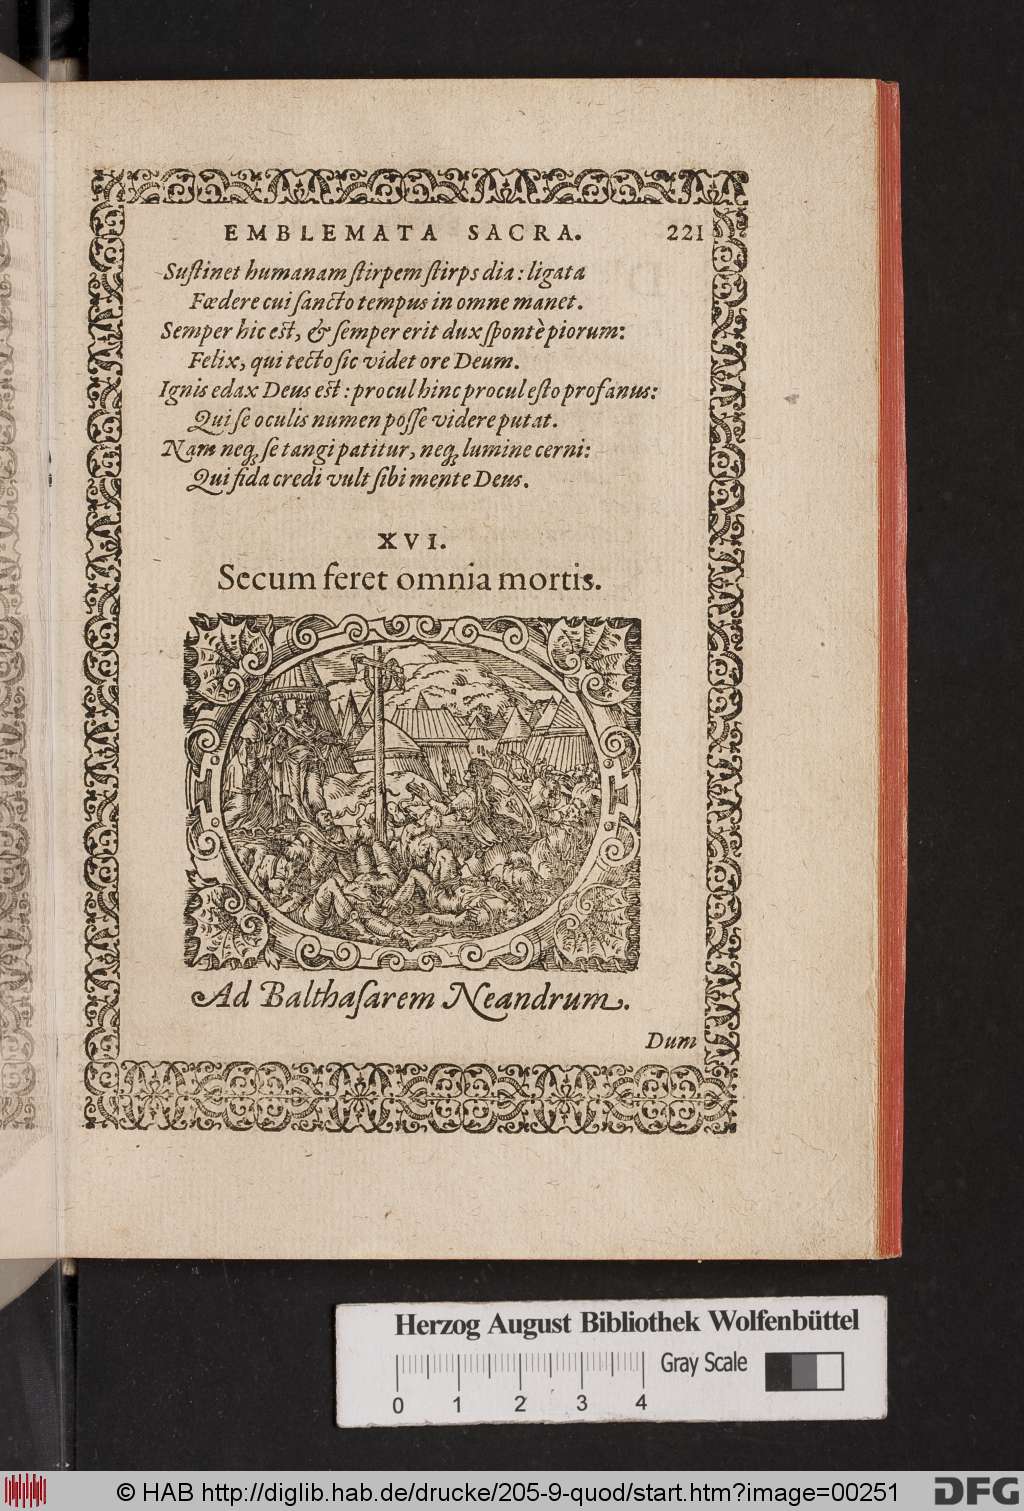 EMBLEMATA SACRA. 221
Suſtinet humanam ſtirpem ſtirps dia: ligata
Fœdere cui ſancto tempus in omne manet.
Semper hic est, & ſemper erit dux ſpontè piorum:
Felix, qui tecto ſic videt ore Deum.
Ignis edax Deus est: procul hinc procul eſto profanus:
Qui ſe oculis numen poſſe videre putat.
Nam neq; ſe tangi patitur, neq; lumine cerni:
Qui fida credi vult ſibi mente Deus.
XVI.
Secum feret omnia mortis.
Ad Balthaſarem Neandrum.
Dum
Herzog August Bibliothek Wolfenbüttel
Gray Scale
0 1 2 3 4
© HAB http://diglib.hab.de/drucke/205-9-quod/start.htm?image=00251
DFG